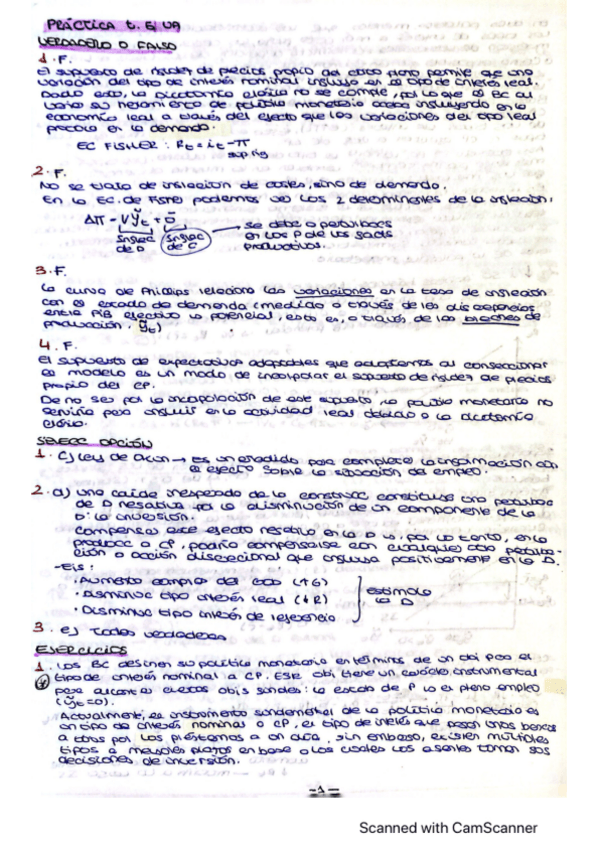 PRÁCTICA t. 5, VA
VERDADERO O FALSO
1. F.
El supuesto de rigidez de precios propio del corto plazo permite que una
variación del tipo de interés nominal influya en el tipo de interés real.
Dado esto, la dicotomía clásica no se cumple, por lo que el BC al
variar su herramienta de política monetaria acaba influyendo en la
economía real a través del efecto que las variaciones del tipo real
provoca en la demanda.
EC FISHER: Rt = it - π
sup. rig
2. F.
No se trata de inflación de costes, sino de demanda.
En la EC. de podemos ver los 2 determinantes de la inflación:
Δπ = Vỹt + ō → se debe a perturbac
Inflac de D Inflac de C en los P de los
productivos.
3. F.
La curva de Phillips relaciona las variaciones en la tasa de inflación
con el estado de demanda (medido a través de las discrepancias
entre PIB efectivo y potencial, esto es, a través de las brechas de
producción: ỹt)
4. F.
El supuesto de expectativas adaptables que adoptamos al confeccionar
el modelo es un modo de incorporar el supuesto de rigidez de precios
propio del CP.
De no ser por la incorporación de este supuesto, la política monetaria no
serviría para influir en la actividad real debido a la dicotomía
clásica.
SELECC OPCIÓN
1. c) Ley de Okun → es un añadido para completar la información con
el efecto sobre la situación del empleo.
2. a) Una caída inesperada de la construcc constituye una perturbac
de D negativa por la disminución de un componente de la
D: la inversión.
Compensar este efecto negativo en la D y, por lo tanto, en la
produca a CP, podría compensarse con cualquier otra perturba-
ción o acción discrecional que influya positivamente en la D.
-Ejs:
· Aumento compras del edo (↑G)
· Disminuc tipo interés real (↓R)
· Disminuc tipo interés de referencia
estímulo
la D
3. e) Todas verdaderas
EJERCICIOS
1. Los BC definen su política monetaria en términos de un obj para el
tipo de interés nominal a CP. Este obj tiene un carácter instrumental
para alcanzar ciertos objs finales: la estab de P y el pleno empleo
(ỹt=0).
Actualmente, el instrumento fundamental de la política monetaria es
un tipo de interés nominal a CP, el tipo de interés que pagan unos bancos
a otros por los préstamos a un día, sin embargo, existen múltiples
tipos a mayores plazos en base a los cuales los agentes toman sus
decisiones de inversión.
-1-
Scanned with CamScanner